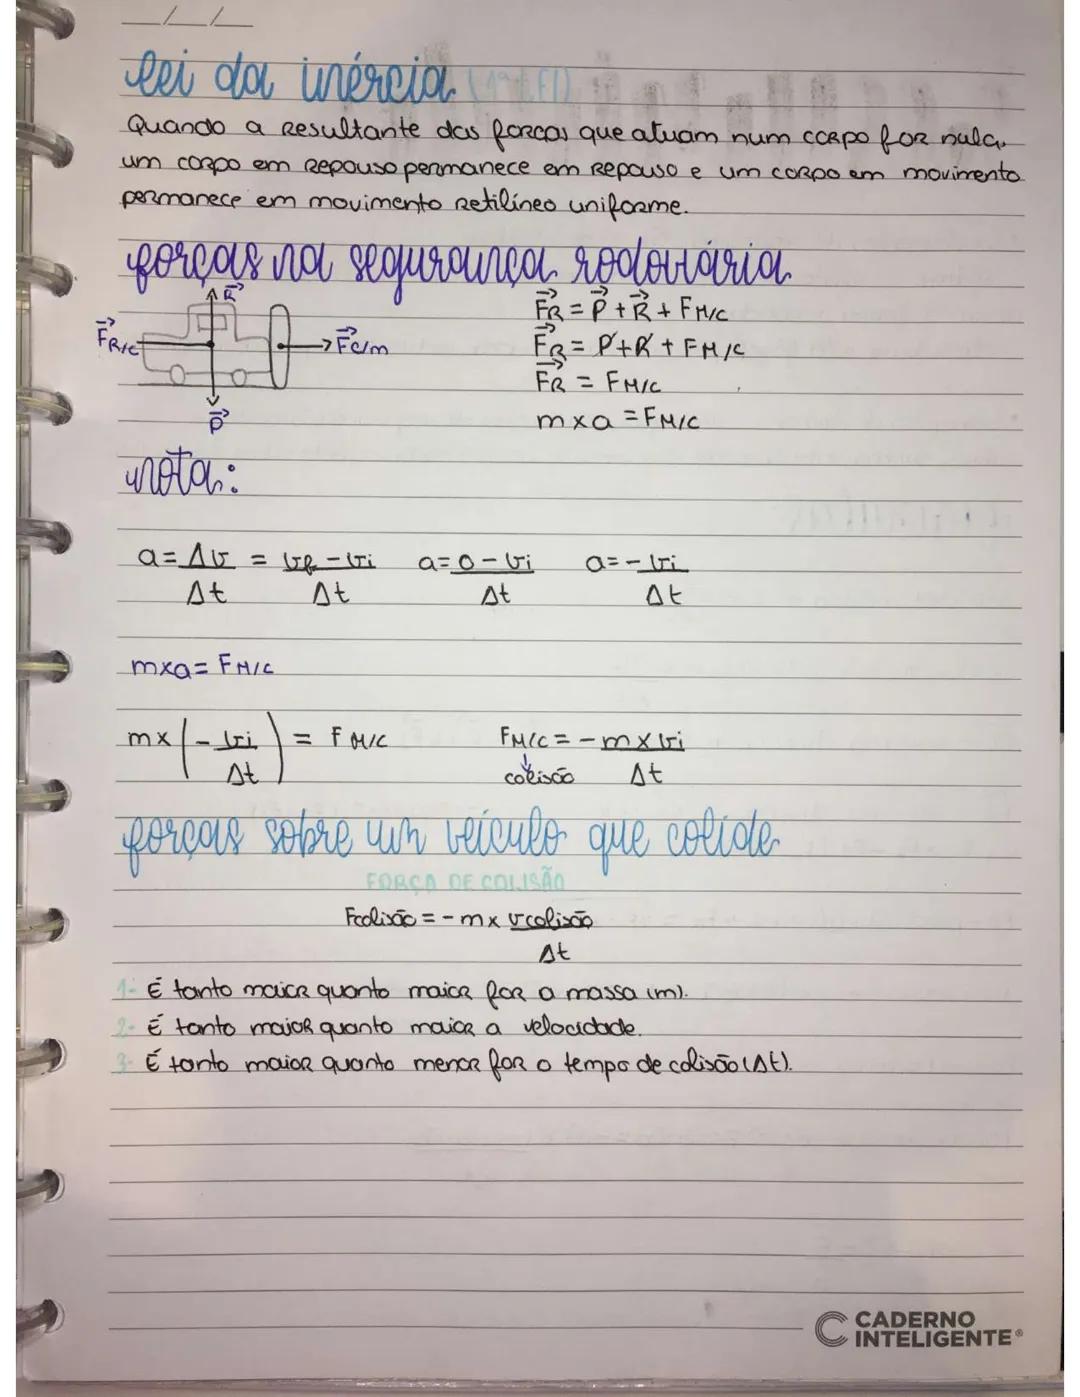 __/__/__
lei da inércia (1ª LEI)
Quando a resultante das forças que atuam num corpo for nula,
um corpo em repouso permanece em repouso e um corpo em movimento
permanece em movimento retilíneo uniforme.
forças na segurança rodoviária
R⃗
F⃗R/C
F⃗c/m
P⃗
F⃗R = P⃗ + R⃗ + FM/C
F⃗R = P + R + FM/C
F⃗R = FM/C
m x a = FM/C
nota:
a = Δv/Δt = vf - vi/Δt a = 0 - vi/Δt a = - vi/Δt
m x a = FM/C
m x (- vi/Δt) = FM/C FM/C = - m x vi/Δt
colisão
forças sobre um veículo que colide
FORÇA DE COLISÃO
Fcolisão = - m x vcolisão/Δt
1- É tanto maior quanto maior for a massa (m).
2- É tanto maior quanto maior a velocidade.
3- É tanto maior quanto menor for o tempo de colisão (Δt).
CADERNO
INTELIGENTE®